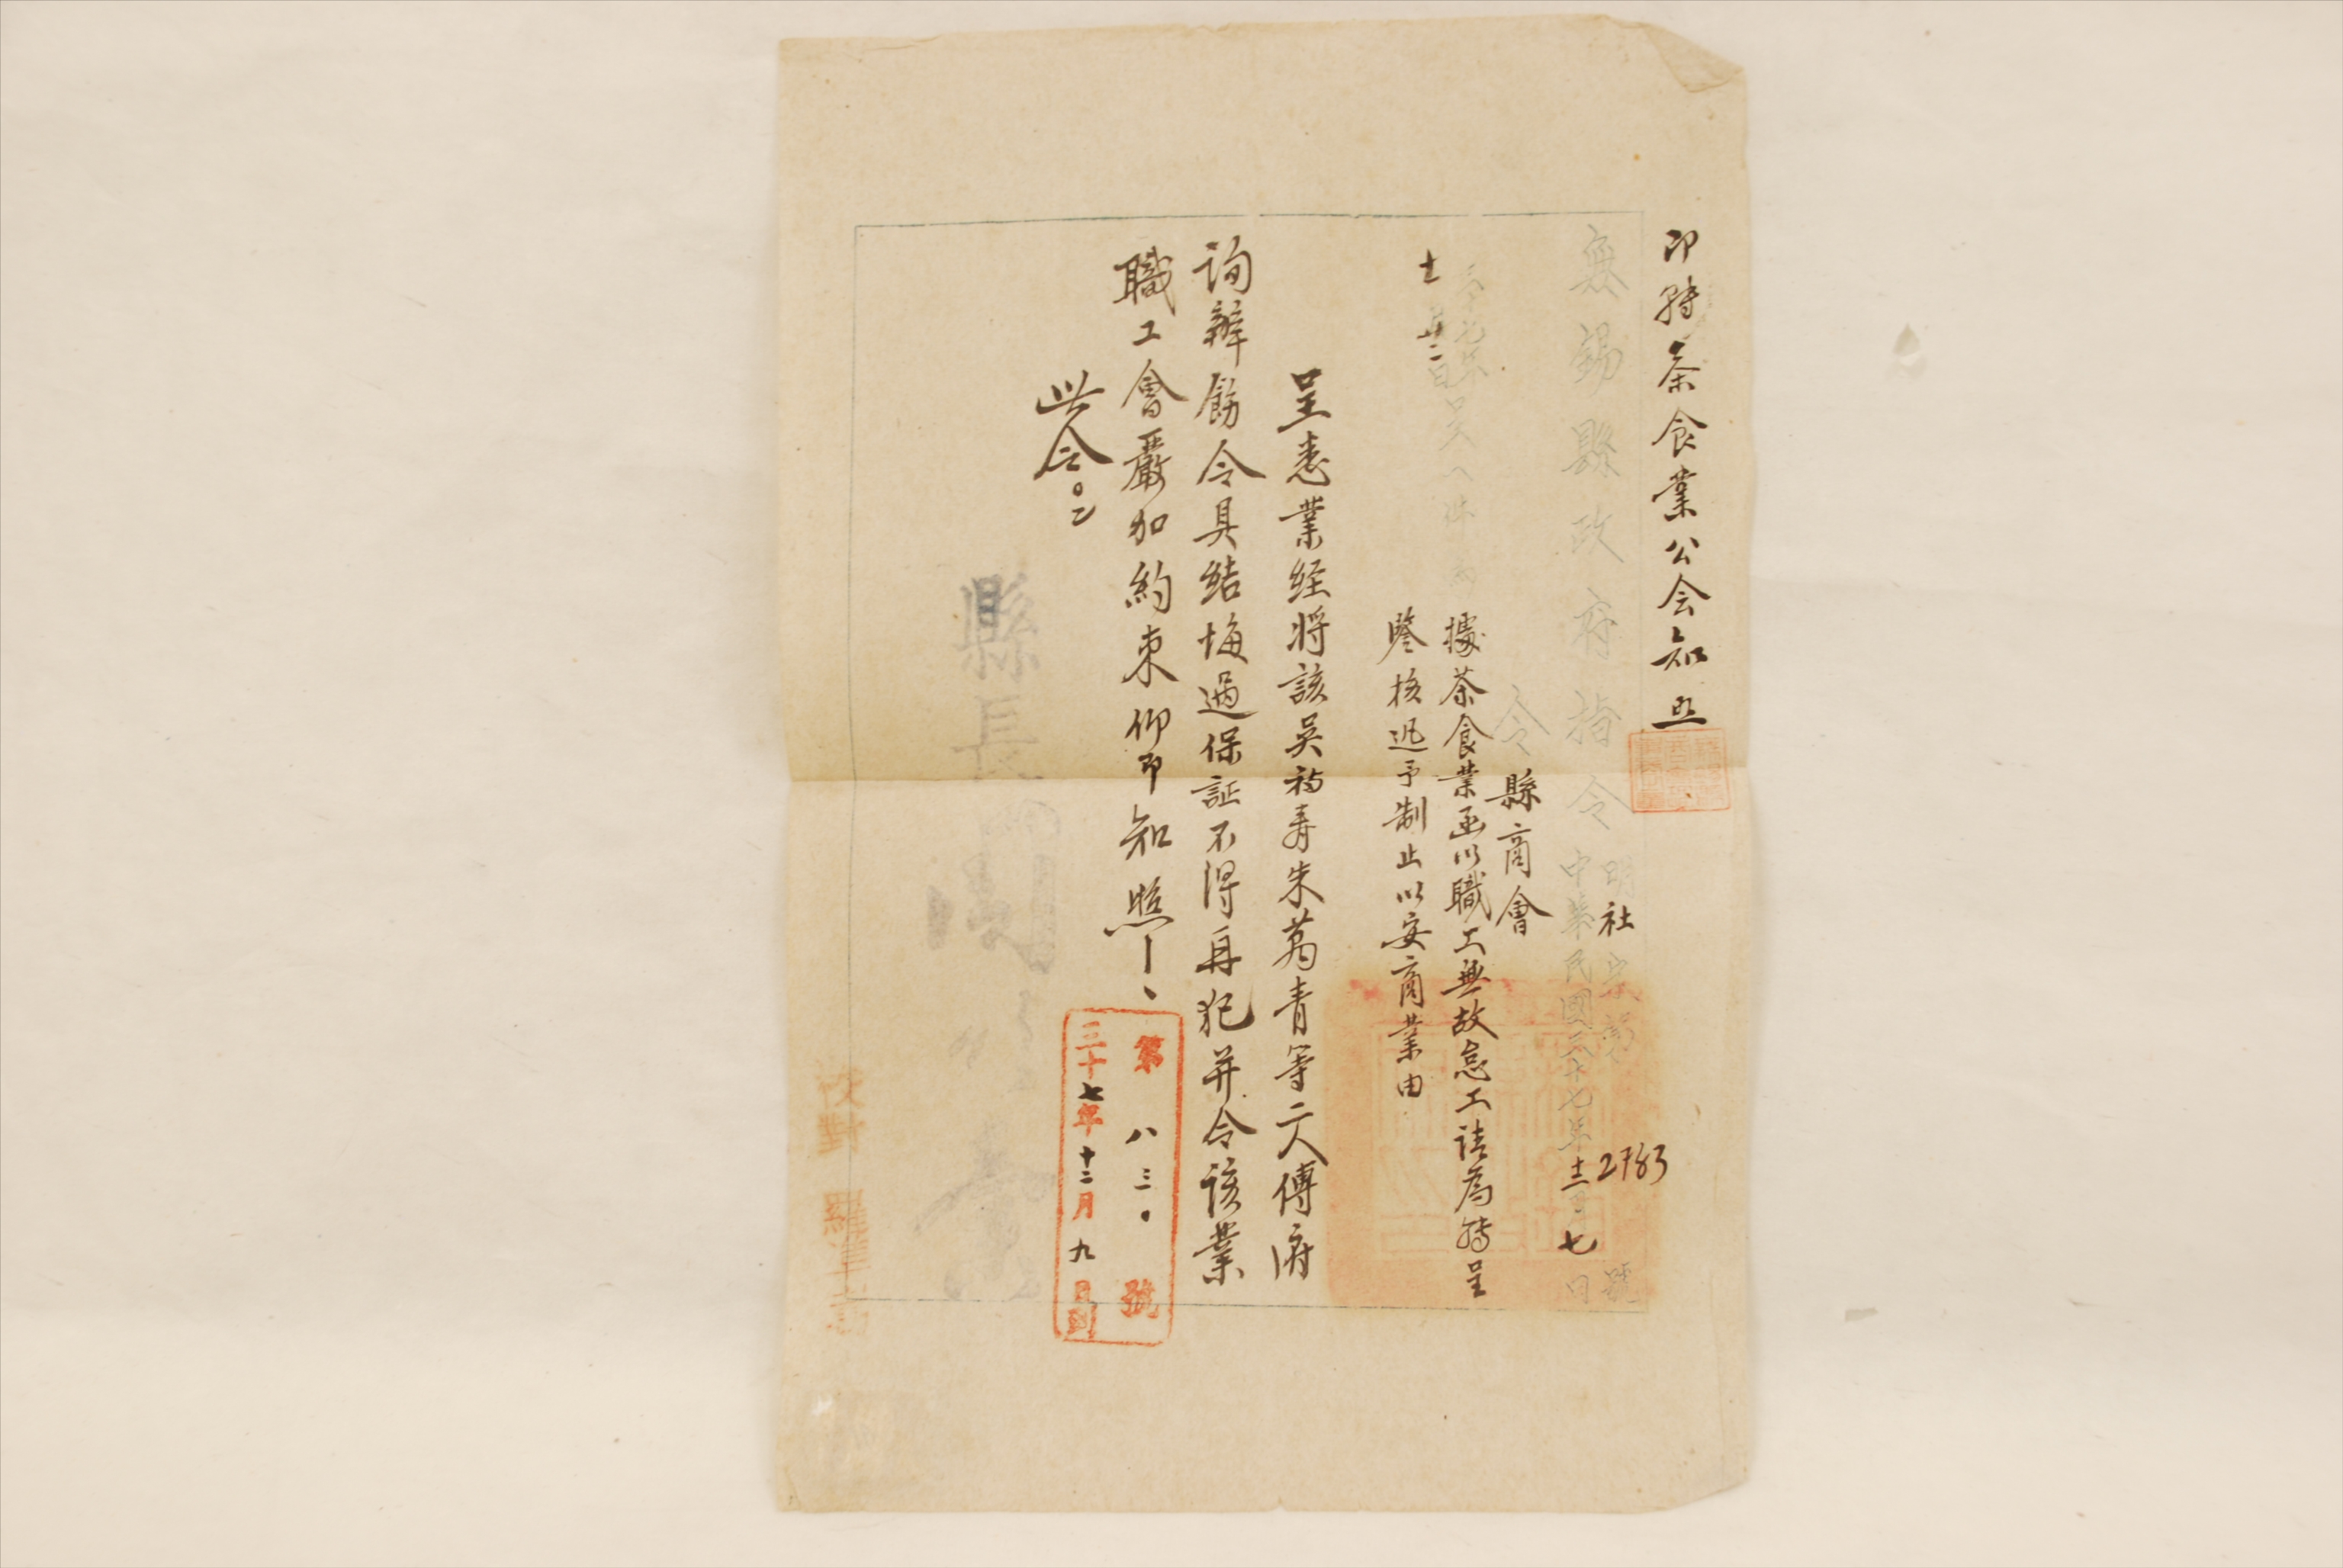 即轉茶食業公会知照
無錫縣政府指令
明社宗第2783號
中華民國三十七年十二月七日
令縣商會
三十七年
十二月二日呈乙件為
據茶食業函以職工無故怠工請為轉呈
鑒核迅予制止以安商業由
呈悉業經将該吳福寿朱萬青等二人傳府
詢辦飭令具結悔過保証不得再犯并令該業
職工會嚴加約束仰即知照
此令。
縣長
第八三〇號
三十七年十二月九日到